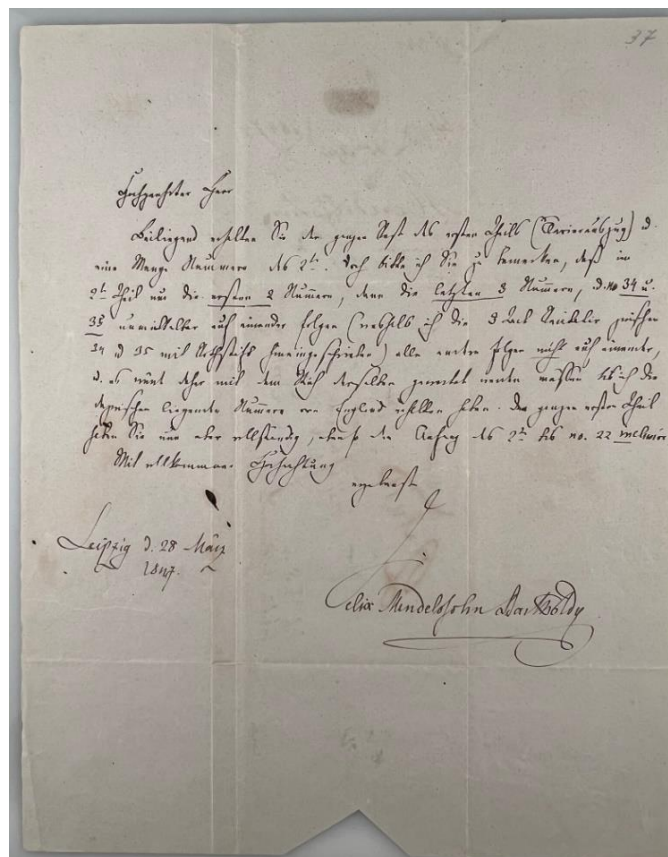 37
Hochgeehrter Herr
Beiliegend erhalten Sie den ganzen Rest des ersten Theils (Clavierauszug) u.
eine Menge Nummern des 2t. Doch bitte ich Sie zu bemerken, daß im
2t Theil nur die ersten 2 Nummern, dann die letzten 3 Nummern, u. No 34 u.
35 unmittelbar auf einander folgen ( ich die 3 Takt zwischen
34 u 35 mit hineingeschrieben) alle andern folgen nicht auf einander,
u. es wird daher mit dem Stich derselben gewartet werden müssen bis ich die
dazwischen liegenden Nummern von England erhalten habe. Den ganzen ersten Theil
haben Sie nun aber vollständig, ebenso den Anfang des 2t bis no. 22 inclusive
Mit vollkommner Hochachtung
ergebenst
Leipzig d. 28 März
1847.
Felix Mendelssohn Bartholdy